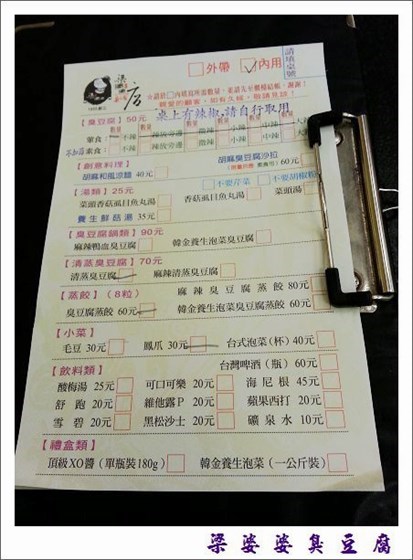 外帶 內用
請填桌號
桌上有辣椒,請自行取用
【臭豆腐】50元
葷食: 不辣 微辣 小辣 中辣 大辣
素食: 不辣 微辣 小辣 中辣
【創意料理】
胡麻和風涼麵 40元 胡麻臭豆腐沙拉 60元
不要芹菜 不要胡椒粉
【湯類】25元
菜頭香菇虱目魚丸湯 香菇虱目魚丸湯 菜頭湯
養生鮮菇湯 35元
【臭豆腐鍋類】90元
麻辣鴨血臭豆腐 韓金養生泡菜臭豆腐
【清蒸臭豆腐】70元
清蒸臭豆腐 麻辣清蒸臭豆腐
【蒸餃】(8粒) 麻辣臭豆腐蒸餃 80元
臭豆腐蒸餃 60元 韓金養生泡菜臭豆腐蒸餃 60元
【小菜】
毛豆 30元 鳳爪 30元 台式泡菜(杯) 40元
【飲料類】 台灣啤酒(瓶) 60元
酸梅湯 25元 可口可樂 20元 海尼根 45元
舒跑 20元 維他露P 20元 蘋果西打 20元
雪碧 20元 黑松沙士 20元 礦泉水 10元
【禮盒類】
頂級XO醬(單瓶裝180g) 韓金養生泡菜(一公斤裝)
梁婆婆臭豆腐